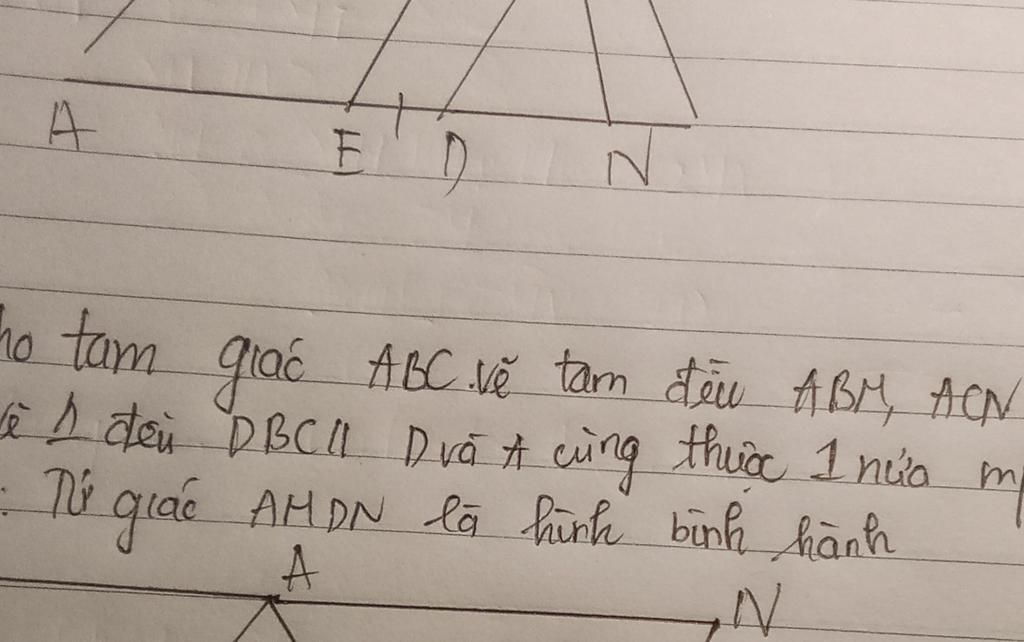 A E D N
ho tam giác ABC.vẽ tam đều ABM, ACN
Δ đều DBC D và A cùng thuộc 1 nửa mp
: Tứ giác AMDN là hình bình hành
A N